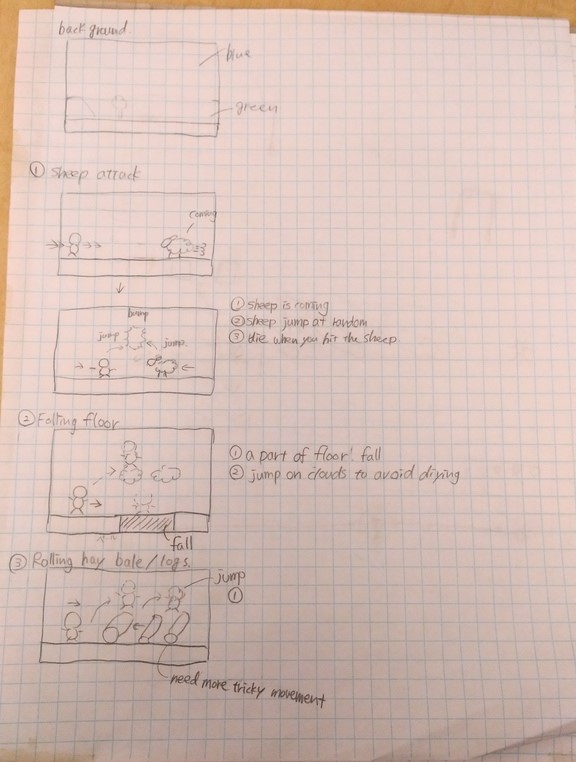 back ground.
blue
green
① Sheep attack
coming
bump
jump
jump.
① Sheep is coming
② sheep jump at random
③ die when you hit the sheep.
② Falling floor
① a part of floor! fall
② jump on clouds to avoid drying
fall
③ Rolling hay bale / logs.
jump
①
need more tricky movement